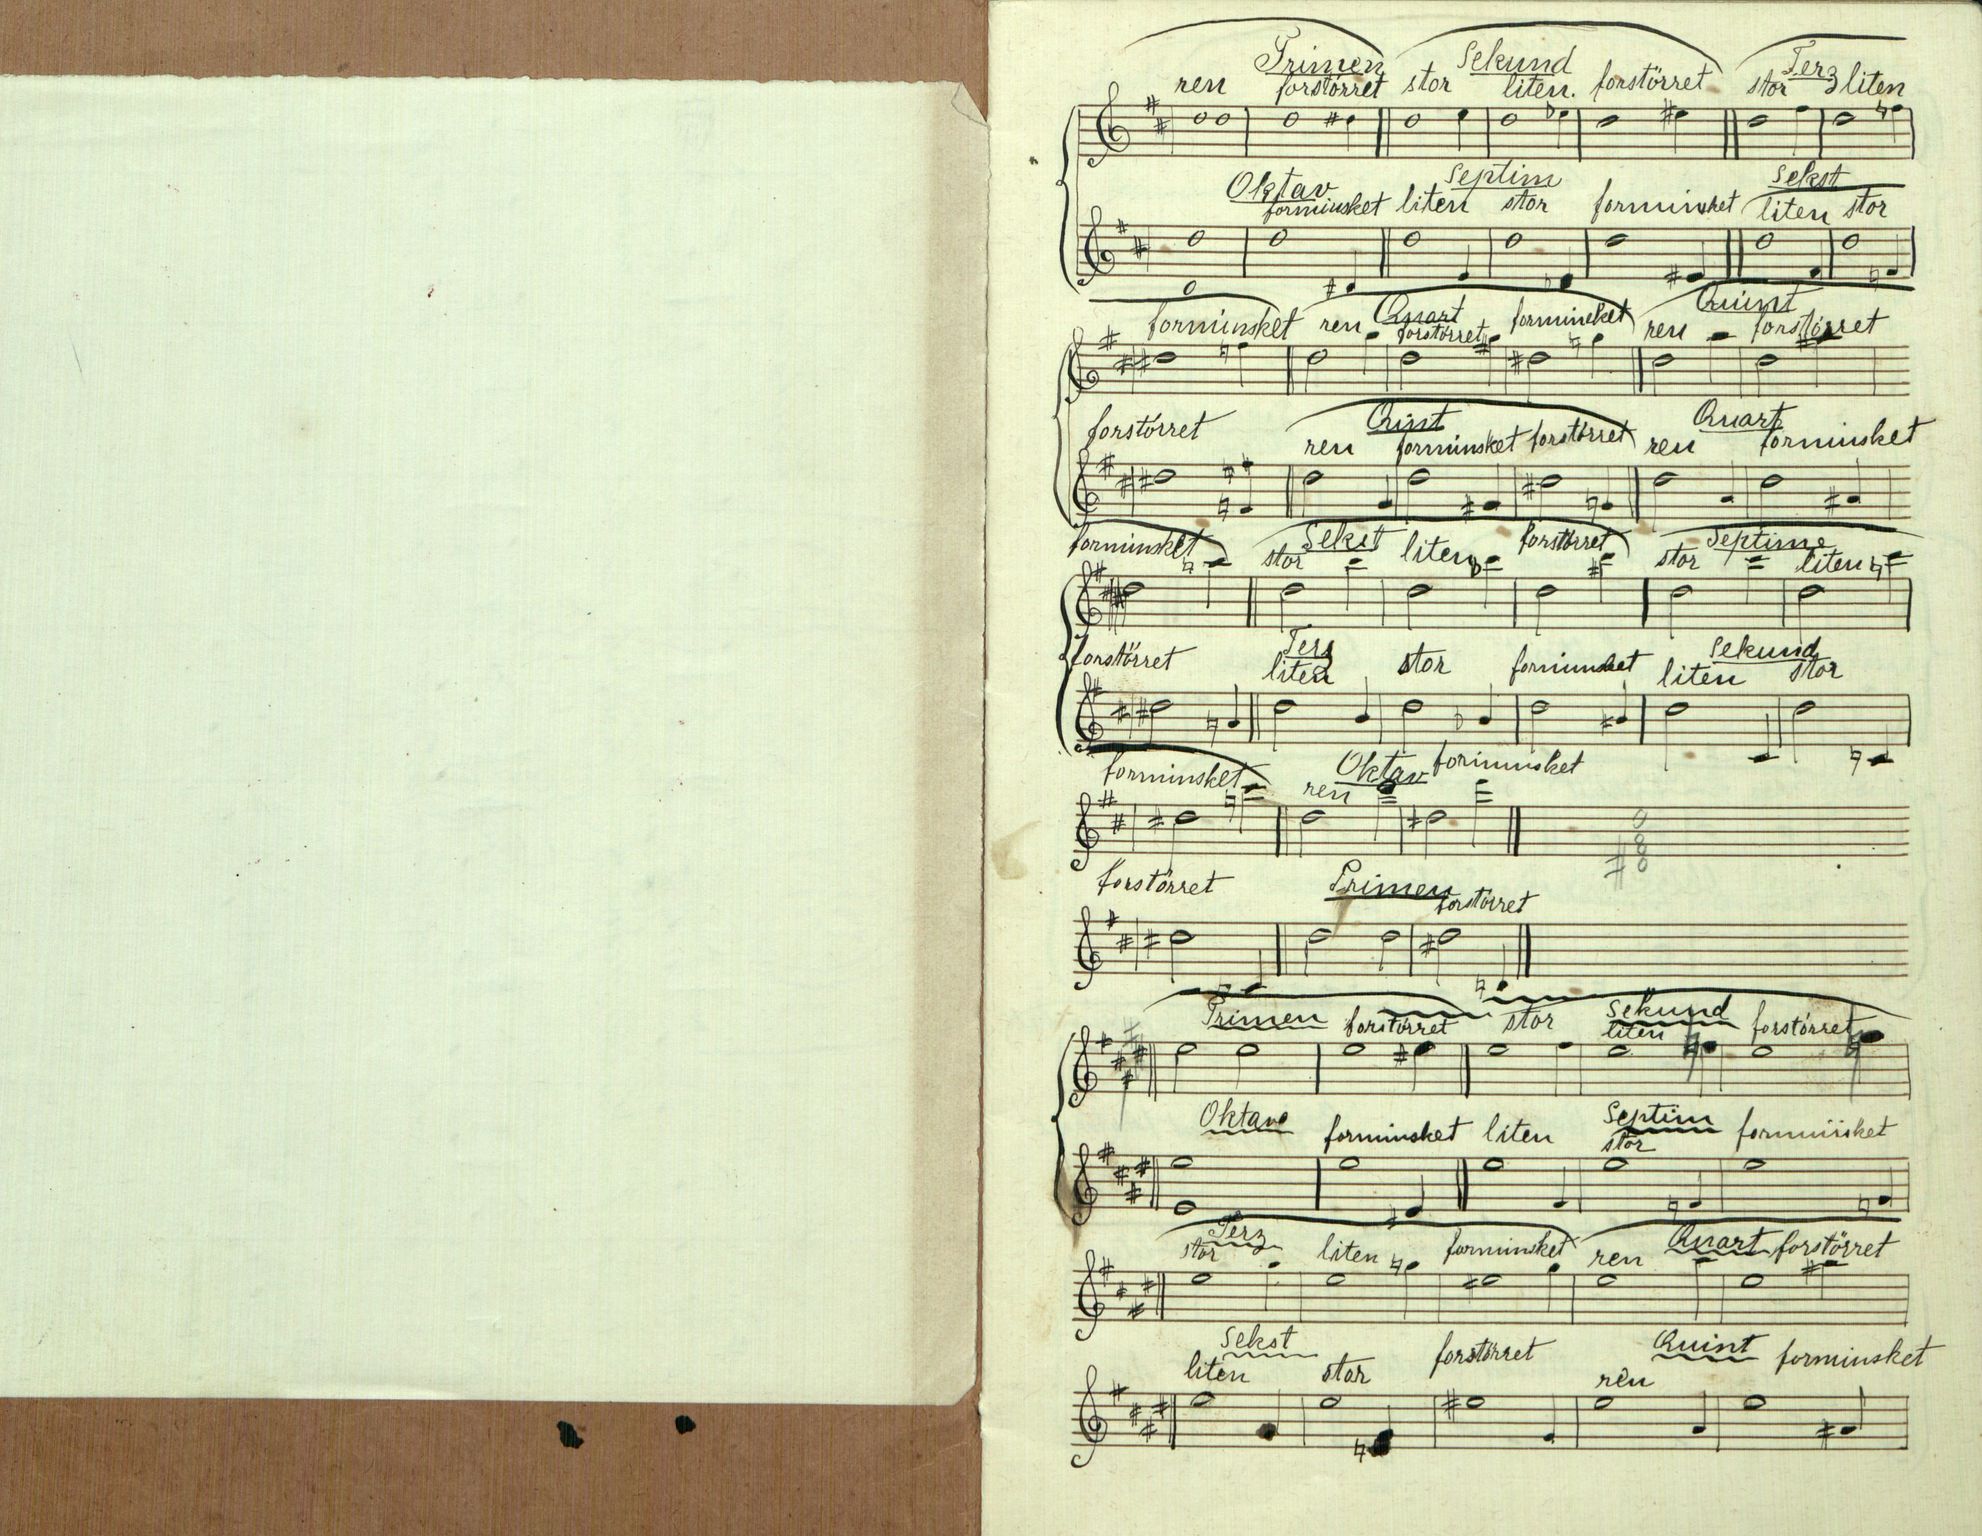 Primen Sekund Terz
ren forstörret stor liten. forstörret stor liten
Oktav Septim Sekst
forminsket liten stor forminsket liten stor
Quart Quint
forminsket ren forstörret forminsket ren forstörret
Quint Quart
forstörret ren forminsket forstörret ren forminsket
Sekst Septime
forminsket stor liten forstörret stor liten
Terz Sekund
forstörret liten stor forminsket liten stor
Oktav
forminsket ren forminsket
Primen
forstörret forstörret
Primen Sekund
forstörret stor liten forstörret
Oktave Septim
forminsket liten stor forminsket
Terz Quart
stor liten forminsket ren forstörret
Sekst Quint
liten stor forstörret ren forminsket